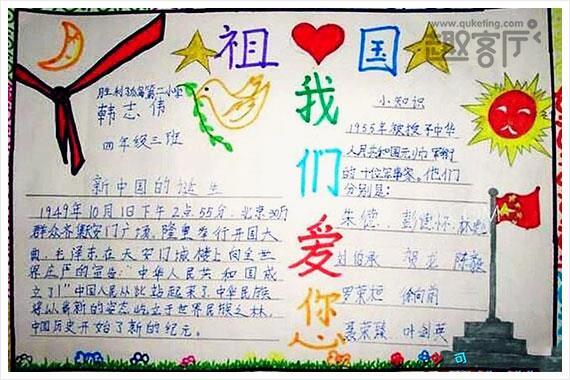 www.quketing.com
趣客厅
祖❤国
我们爱你
胜利孤岛第二小学
韩志伟
四年级三班
新中国的诞生
1949年10月1日下午2点55分,北京30万
群众齐集天安门广场,隆重举行开国大
典,毛泽东在天安门城楼上向全世
界庄严的宣告:"中华人民共和国成
立了!"中国人民从此站起来了,中华民族
将以崭新的姿态屹立于世界民族之林,
中国历史开始了新的纪元。
小知识
1955年被授予中华
人民共和国元帅军衔
的十位军事家,他们
分别是:
朱德、彭德怀、林彪
刘伯承 贺龙 陈毅
罗荣桓 徐向前
聂荣臻 叶剑英